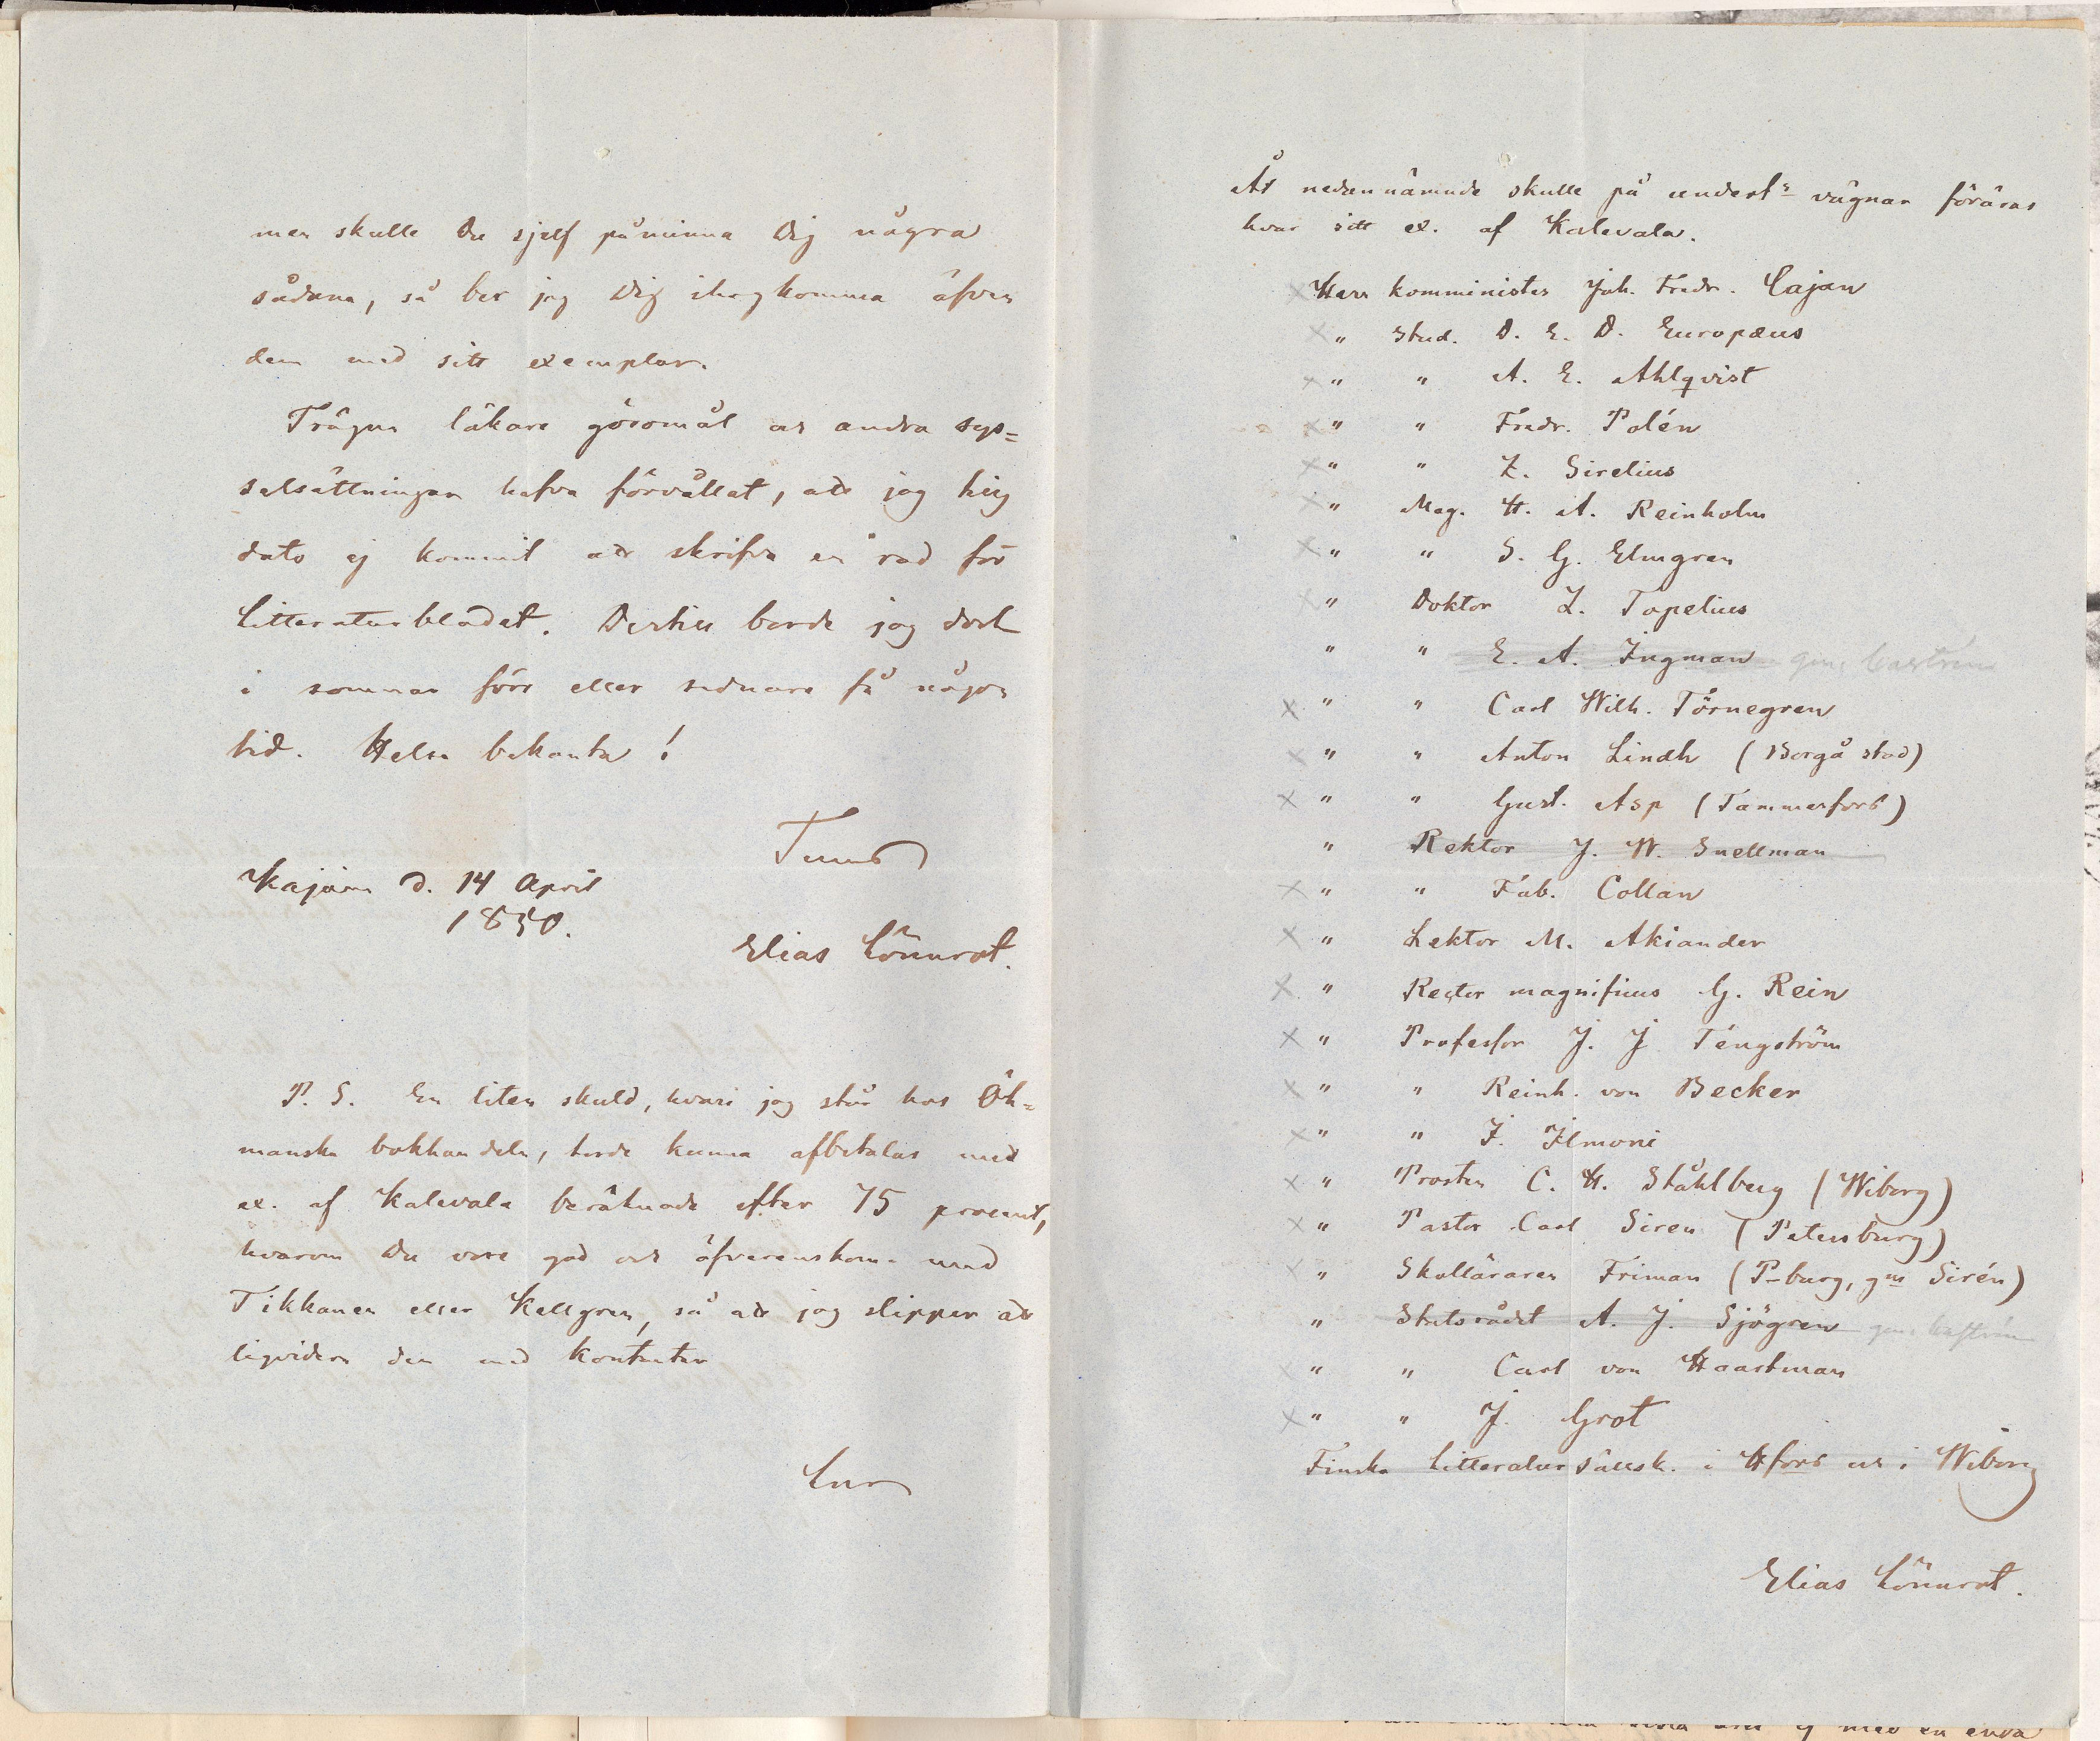 men skulle Du sjelf påminna Dig några
sådana, så ber jag Dig ihogkomma äfven
dem med sitt exemplar.
Trägna läkare göromål och andra sys=
selsättningar hafva förvållat, att jag hitg
dato ej kommit att skrifva en rad för
Litteraturbladet. Dertill borde jag doch
i sommar förr eller sednare få någon
tid. Helsa bekanta!
Tuus
Kajana d. 14 April
1850.
Elias Lönnrot.
P. S. En liten skuld, hvari jag står hos Öh=
manska bokhandeln, torde kunna afbetalas med
ex. af Kalevala beräknade efter 75 procent,
hvarom Du vore god och öfverenskom med
Tikkanen eller Kellgren, så att jag slipper att
liqvidera den med kontanter
Lnr
Åt nedannämnde skulle på undert:s vägnar föräras
hvar sitt ex. af Kalevala.
Herr Komminister Joh. Fredr. Cajan
" Stud. D. E. D. Europæus
" " A. E. Ahlqvist
" " Fredr. Polén
" " Z. Sirelius
" Mag. H. A. Reinholm
" " S. G. Elmgren
" Doktor Z. Topelius
" " E. A. Ingman gm Castrén
" " Carl Wilh. Törnegren
" " Anton Lindh (Borgå stad)
" " Gust. Asp (Tammerfors)
" Rektor J. W. Snellman
" " Fab. Collan
" Lektor M. Akiander
" Rector magnificus G. Rein
" Professor J. J. Tengström
" " Reinh. von Becker
" " I. Ilmoni
" Prosten C. H. Ståhlberg (Wiborg)
" Pastor Carl Siren (Petersburg)
" Skolläraren Friman (P-burg, gm Sirén)
" Statsrådet A. J. Sjögren gm Castrén
" " Carl von Haartman
" " J. Grot
Finska Litteratur Sällsk. i Hfors och i Wiborg
Elias Lönnrot.